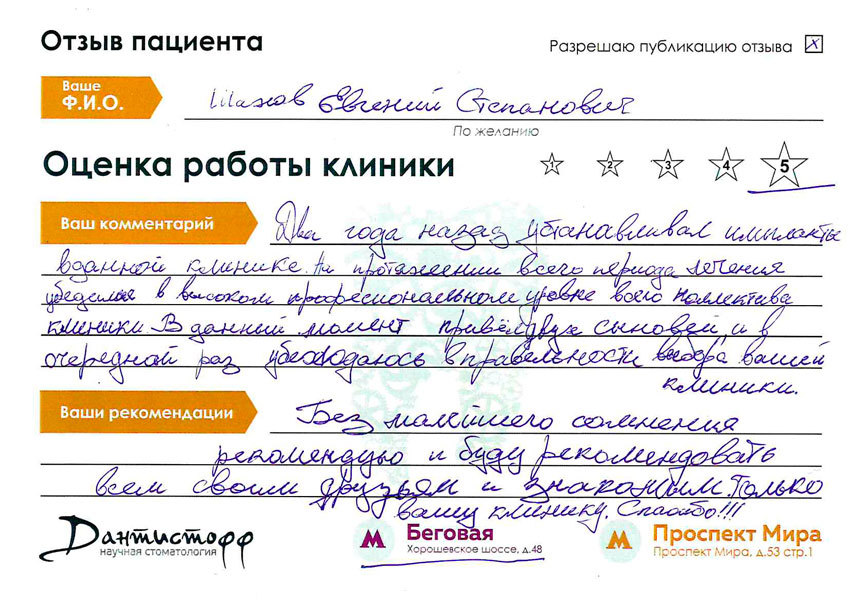 Отзыв пациента
Разрешаю публикацию отзыва X
Ваше
Ф.И.О.
Евгений Степанович
По желанию
Оценка работы клиники
1 2 3 4 5
Ваш комментарий
Два года назад устанавливал импланты
в данной клинике. На протяжении всего периода лечения
убедился в высоком професиональном уровне всего коллектива
клиники. В данный момент привёл двух сыновей, и в
очередной раз убеждаюсь в правельности выбора вашей
клиники.
Ваши рекомендации
Без малейшего сомнения
рекомендую и буду рекомендовать
всем своим друзьям и знакомым. Только
вашу клинику. Спасибо!!!
Дантистофф
научная стоматология
М Беговая
Хорошевское шоссе, д.48
М Проспект Мира
Проспект Мира, д.53 стр.1